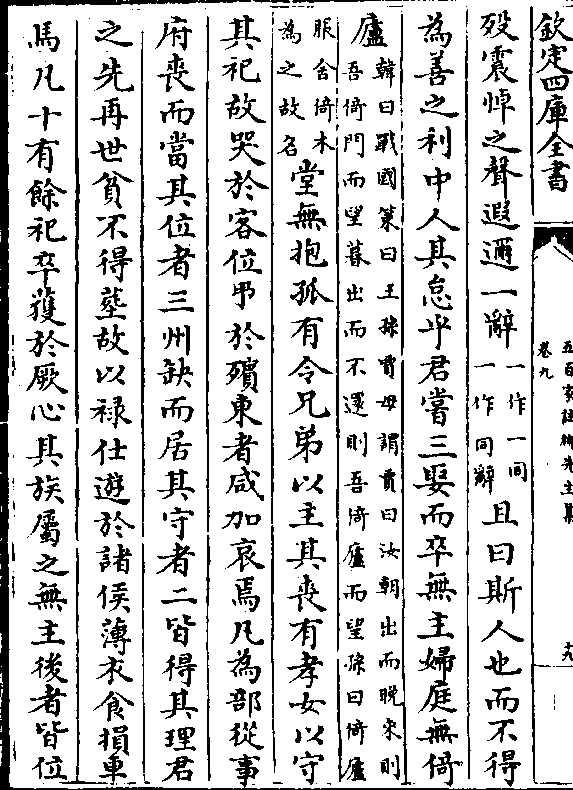 欽定四庫全書
五百家註柳先生集
卷九
十八
歿震悼之聲遐邇一辭一作一同一作同辭且曰斯人也而不得
為善之利中人其怠乎君嘗三娶而卒無主婦庭無倚
廬韓曰戰國策曰王孫賈母謂賈曰汝朝出而晚來則吾倚門而望暮出而不還則吾倚廬而望孫曰倚廬
服舍倚木為之故名堂無抱孤有令兄弟以主其喪有孝女以守
其祀故哭於客位弔於殯東者咸加哀焉凡為部從事
府喪而當其位者三州缺而居其守者二皆得其理君
之先再世貧不得塟故以祿仕遊於諸侯薄衣食損車
馬凡十有餘祀卒獲於厥心其族屬之無主後者皆位